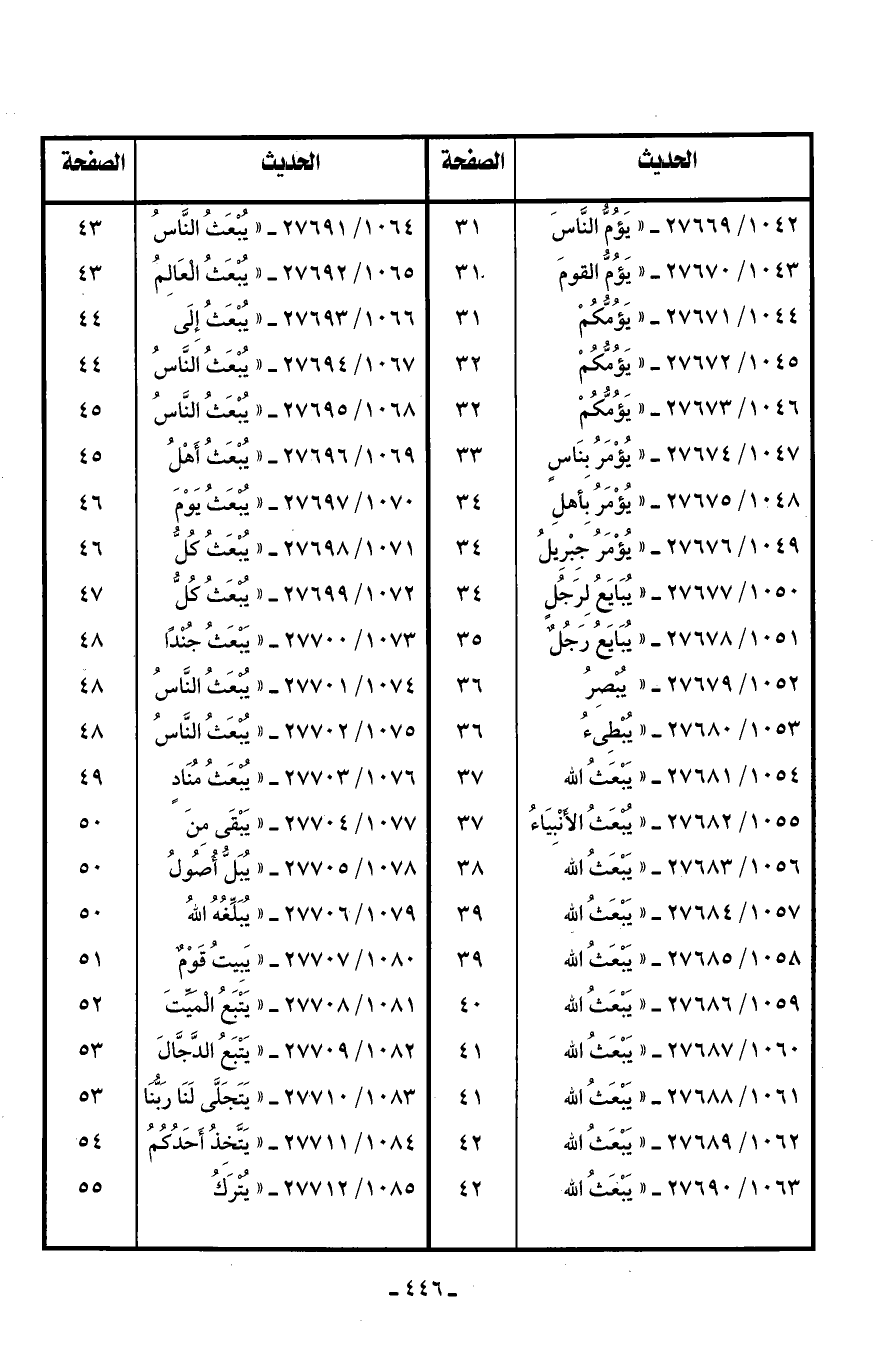 الحديث الصفحة الحديث الصفحة
١٠٤٢/ ٢٧٦٦٩ ـ « يَؤُمُّ النَّاسَ ٣١ ١٠٦٤/ ٢٧٦٩١ ـ « يُبْعَثُ النَّاسُ ٤٣
١٠٤٣/ ٢٧٦٧٠ ـ « يَؤُمُّ القومَ ٣١ ١٠٦٥/ ٢٧٦٩٢ ـ « يُبْعَثُ الْعَالِمُ ٤٣
١٠٤٤/ ٢٧٦٧١ ـ « يَؤُمُّكُمْ ٣١ ١٠٦٦/ ٢٧٦٩٣ ـ « يُبْعَثُ إِلَى ٤٤
١٠٤٥/ ٢٧٦٧٢ ـ « يَؤُمُّكُمْ ٣٢ ١٠٦٧/ ٢٧٦٩٤ ـ « يُبْعَثُ النَّاسُ ٤٤
١٠٤٦/ ٢٧٦٧٣ ـ « يَؤُمُّكُمْ ٣٢ ١٠٦٨/ ٢٧٦٩٥ ـ « يُبْعَثُ النَّاسُ ٤٥
١٠٤٧/ ٢٧٦٧٤ ـ « يُؤْمَرُ بِنَاسٍ ٣٣ ١٠٦٩/ ٢٧٦٩٦ ـ « يُبْعَثُ أَهْلُ ٤٥
١٠٤٨/ ٢٧٦٧٥ ـ « يُؤْمَرُ بِأهلِ ٣٤ ١٠٧٠/ ٢٧٦٩٧ ـ « يُبْعَثُ يَوْمَ ٤٦
١٠٤٩/ ٢٧٦٧٦ ـ « يُؤْمَرُ جِبْرِيلُ ٣٤ ١٠٧١/ ٢٧٦٩٨ ـ « يُبْعَثُ كُلُّ ٤٦
١٠٥٠/ ٢٧٦٧٧ ـ « يُبَايَعُ لِرَجُلٍ ٣٤ ١٠٧٢/ ٢٧٦٩٩ ـ « يُبْعَثُ كُلُّ ٤٧
١٠٥١/ ٢٧٦٧٨ ـ « يُبَايَعُ رَجُلٌ ٣٥ ١٠٧٣/ ٢٧٧٠٠ ـ « يَبْعَثُ جُنْدًا ٤٨
١٠٥٢/ ٢٧٦٧٩ ـ « يُبْصِرُ ٣٦ ١٠٧٤/ ٢٧٧٠١ ـ « يُبْعَثُ النَّاسُ ٤٨
١٠٥٣/ ٢٧٦٨٠ ـ « يُبْطِىءُ ٣٦ ١٠٧٥/ ٢٧٧٠٢ ـ « يُبْعَثُ النَّاسُ ٤٨
١٠٥٤/ ٢٧٦٨١ ـ « يَبْعَثُ الله ٣٧ ١٠٧٦/ ٢٧٧٠٣ ـ « يُبْعَثُ مُنَادٍ ٤٩
١٠٥٥/ ٢٧٦٨٢ ـ « يُبْعَثُ الأَنْبِيَاءُ ٣٧ ١٠٧٧/ ٢٧٧٠٤ ـ « يَبْقَى مِنَ ٥٠
١٠٥٦/ ٢٧٦٨٣ ـ « يَبْعَثُ الله ٣٨ ١٠٧٨/ ٢٧٧٠٥ ـ « يُبَلُّ أُصُولُ ٥٠
١٠٥٧/ ٢٧٦٨٤ ـ « يَبْعَثُ الله ٣٩ ١٠٧٩/ ٢٧٧٠٦ ـ « يُبَلِّغُهُ الله ٥٠
١٠٥٨/ ٢٧٦٨٥ ـ « يَبْعَثُ الله ٣٩ ١٠٨٠/ ٢٧٧٠٧ ـ « يَبِيتُ قَوْمٌ ٥١
١٠٥٩/ ٢٧٦٨٦ ـ « يَبْعَثُ الله ٤٠ ١٠٨١/ ٢٧٧٠٨ ـ « يَتْبَعُ الْمَيِّتَ ٥٢
١٠٦٠/ ٢٧٦٨٧ ـ « يَبْعَثُ الله ٤١ ١٠٨٢/ ٢٧٧٠٩ ـ « يَتْبَعُ الدَّجَّالَ ٥٣
١٠٦١/ ٢٧٦٨٨ ـ « يَبْعَثُ الله ٤١ ١٠٨٣/ ٢٧٧١٠ ـ « يَتَجَلَّى لَنَا رَبُّنَا ٥٣
١٠٦٢/ ٢٧٦٨٩ ـ « يَبْعَثُ الله ٤٢ ١٠٨٤/ ٢٧٧١١ ـ « يَتَّخِذُ أَحَدُكُمُ ٥٤
١٠٦٣/ ٢٧٦٩٠ ـ « يَبْعَثُ الله ٤٢ ١٠٨٥/ ٢٧٧١٢ ـ « يُتْرَكُ ٥٥
ـ ٤٤٦ ـ